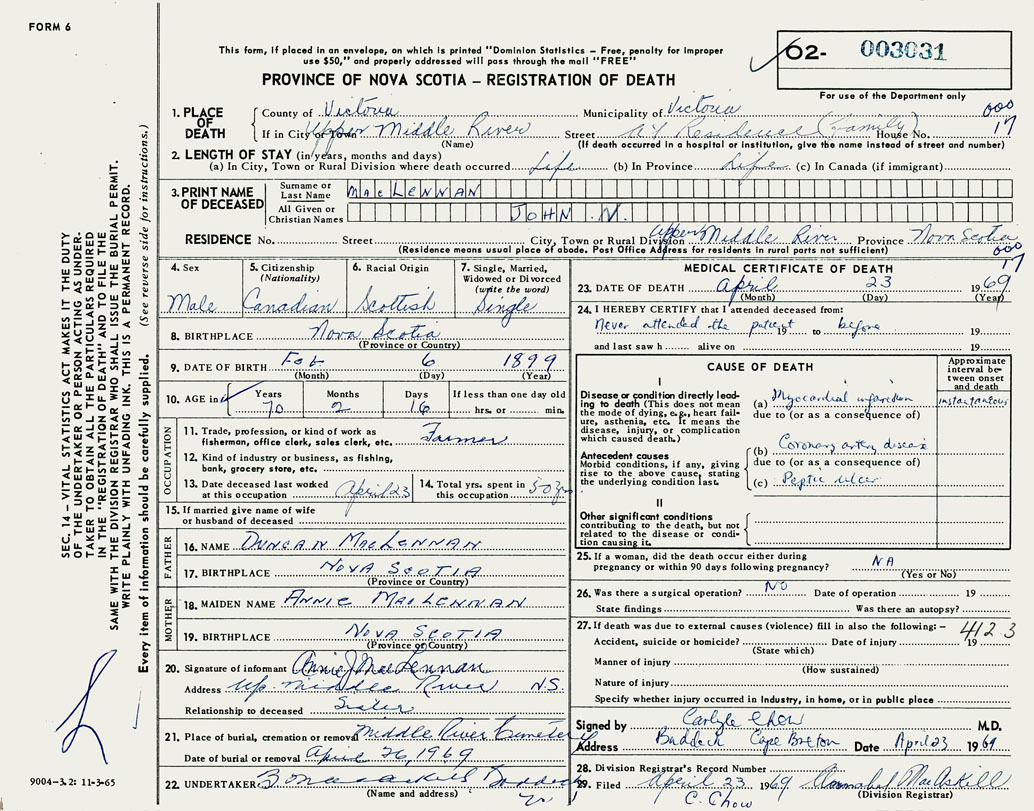 FORM 6
This form, if placed in an envelope, on which is printed "Dominion Statistics – Free, penalty for improper
use $50," and properly addressed will pass through the mail "FREE"
PROVINCE OF NOVA SCOTIA – REGISTRATION OF DEATH
62- 003031
For use of the Department only
1. PLACE OF DEATH
County of Victoria Municipality of Victoria 000
If in City or Town Upper Middle River Street at Residence (Family) House No. 17
(Name) (If death occurred in a hospital or institution, give the name instead of street and number)
2. LENGTH OF STAY (in years, months and days)
(a) In City, Town or Rural Division where death occurred Life (b) In Province Life (c) In Canada (if immigrant)
3. PRINT NAME OF DECEASED
Surname or Last Name MacLENNAN
All Given or Christian Names JOHN N.
RESIDENCE No. Street City, Town or Rural Division Upper Middle River Province Nova Scotia
(Residence means usual place of abode. Post Office Address for residents of rural parts not sufficient)
000
17
4. Sex Male
5. Citizenship (Nationality) Canadian
6. Racial Origin Scottish
7. Single, Married, Widowed or Divorced (write the word) Single
8. BIRTHPLACE Nova Scotia
(Province or Country)
9. DATE OF BIRTH Feb 6 1899
(Month) (Day) (Year)
10. AGE in Years Months Days If less than one day old
70 2 16 hrs. or min.
OCCUPATION
11. Trade, profession, or kind of work as fisherman, office clerk, sales clerk, etc. Farmer
12. Kind of industry or business, as fishing, bank, grocery store, etc.
13. Date deceased last worked at this occupation April 23
14. Total yrs. spent in this occupation 50 yrs
15. If married give name of wife or husband of deceased
FATHER
16. NAME DUNCAN MACLENNAN
17. BIRTHPLACE NOVA SCOTIA
(Province or Country)
MOTHER
18. MAIDEN NAME ANNIE MACLENNAN
19. BIRTHPLACE NOVA SCOTIA
(Province or Country)
20. Signature of informant Annie J MacLennan
Address Up. Middle River N.S.
Relationship to deceased Sister
21. Place of burial, cremation or removal Middle River Cemetery
Date of burial or removal April 26, 1969
22. UNDERTAKER Baddeck
(Name and address)
MEDICAL CERTIFICATE OF DEATH
23. DATE OF DEATH April 23 1969
(Month) (Day) (Year)
24. I HEREBY CERTIFY that I attended deceased from:
Never attended the patient 19 to before 19
and last saw h alive on 19
CAUSE OF DEATH
Approximate interval between onset and death
I
Disease or condition directly leading to death (This does not mean the mode of dying, e.g., heart failure, asthenia, etc. It means the disease, injury, or complication which caused death.)
(a) Myocardial infarction instantaneous
due to (or as a consequence of)
Antecedent causes
Morbid conditions, if any, giving rise to the above cause, stating the underlying condition last.
(b) Coronary artery disease
due to (or as a consequence of)
(c) Peptic ulcer
II
Other significant conditions contributing to the death, but not related to the disease or condition causing it.
25. If a woman, did the death occur either during pregnancy or within 90 days following pregnancy? NA
(Yes or No)
26. Was there a surgical operation? NO Date of operation 19
State findings Was there an autopsy?
27. If death was due to external causes (violence) fill in also the following:– 4123
Accident, suicide or homicide? Date of injury 19
(State which)
Manner of injury
(How sustained)
Nature of injury
Specify whether injury occurred in Industry, in home, or in public place
Signed by Carlyle Chow M.D.
Address Baddeck Cape Breton Date April 23 1969
28. Division Registrar's Record Number
29. Filed April 23 1969
(Division Registrar)
C. Chow
SEC. 14 – VITAL STATISTICS ACT MAKES IT THE DUTY
OF THE UNDERTAKER OR PERSON ACTING AS UNDER-
TAKER TO OBTAIN ALL THE PARTICULARS REQUIRED
IN THE "REGISTRATION OF DEATH" AND TO FILE THE
SAME WITH THE DIVISION REGISTRAR WHO SHALL ISSUE THE BURIAL PERMIT.
WRITE PLAINLY WITH UNFADING INK. THIS IS A PERMANENT RECORD.
Every item of information should be carefully supplied. (See reverse side for instructions.)
9004-3.2: 11-3-65